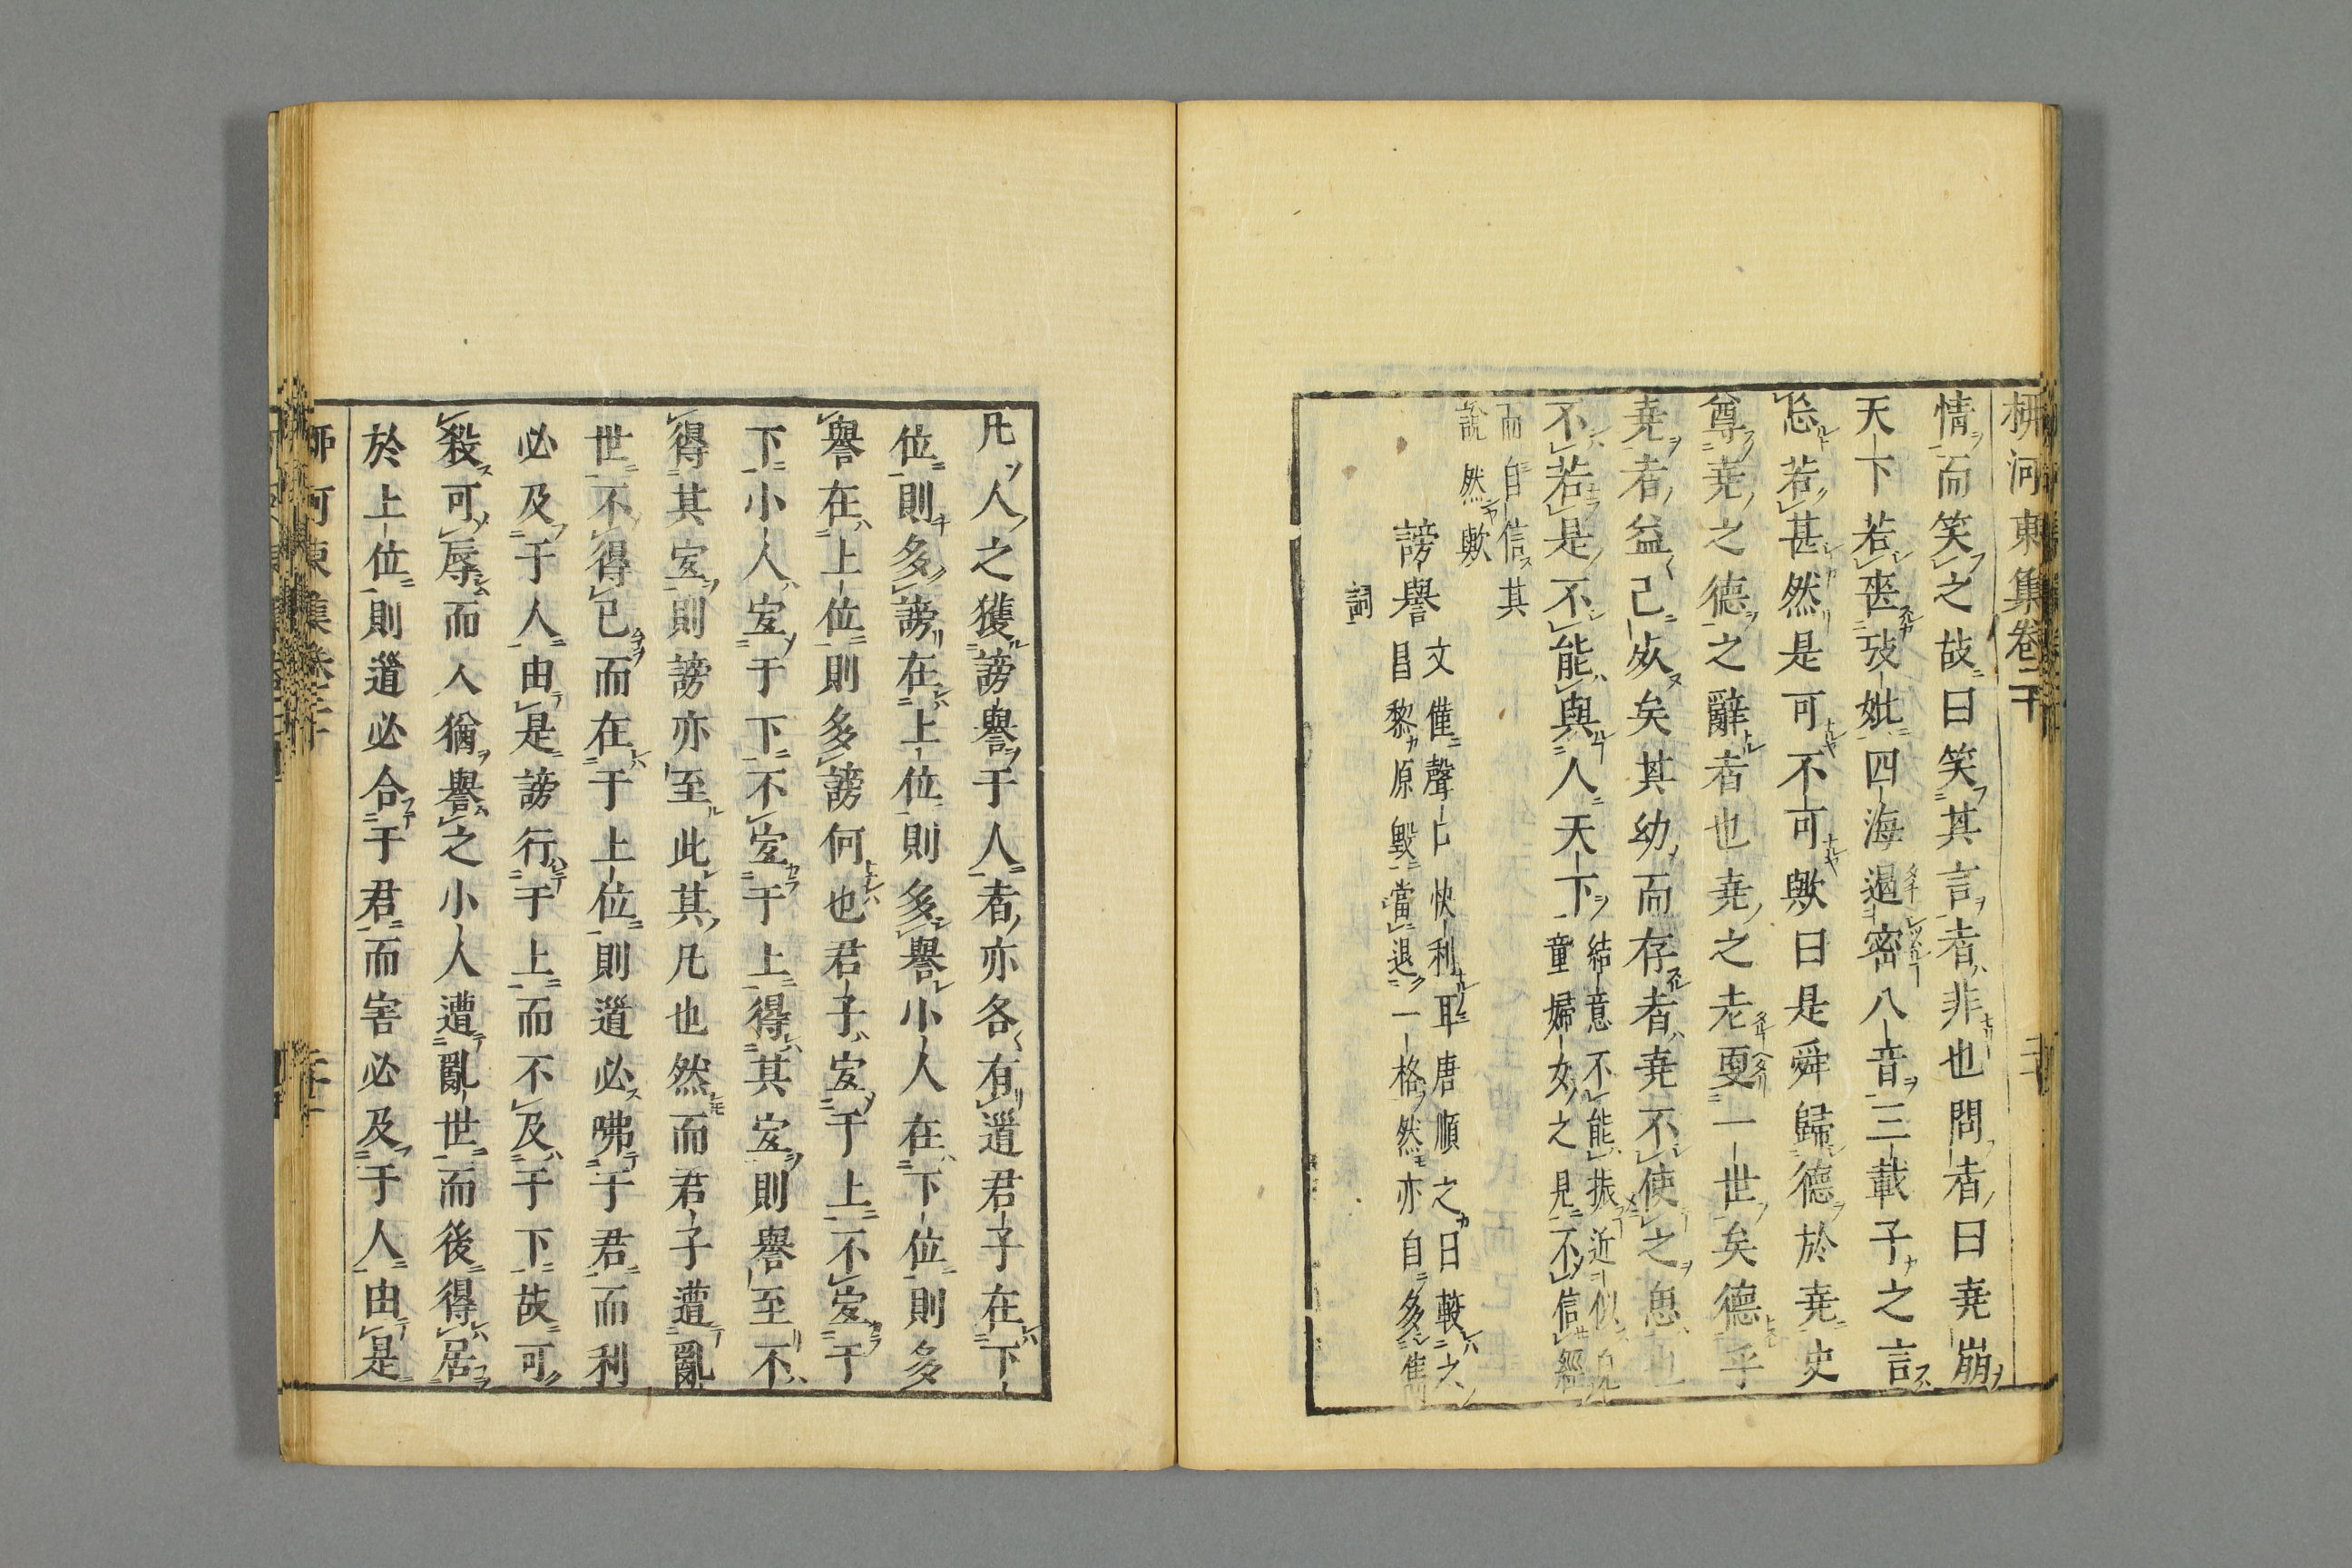 柳河東集卷二十
情而笑之故曰笑其言者非也問者曰堯崩
天下若喪攷妣四海遏密八音三載子之言
忘若甚然是可不可歟曰是舜歸德於堯史
尊堯之德之辭者也堯之老更一世矣德乎
堯者益已㱙矣其幼而存者堯不使之思也
不若是不能與人天下
結意不能振近似
童婦女之見不信經
而自信其
說然歟
謗譽
文僅聲口快利耳唐順之曰較之
昌黎原毀當退一格然亦自多雋
詞
凡人之獲謗譽于人者亦各有道君子在下
位則多謗在上位則多譽小人在下位則多
譽在上位則多謗何也君子宜于上不宜于
下小人宜于下不宜于上得其宜則譽至不
得其宜則謗亦至此其凡也然而君子遭亂
世不得已而在于上位則道必咈于君而利
必及于人由是謗行于上而不及于下故可
殺可辱而人猶譽之小人遭亂世而後得居
於上位則道必合于君而害必及于人由是
柳河東集卷二十